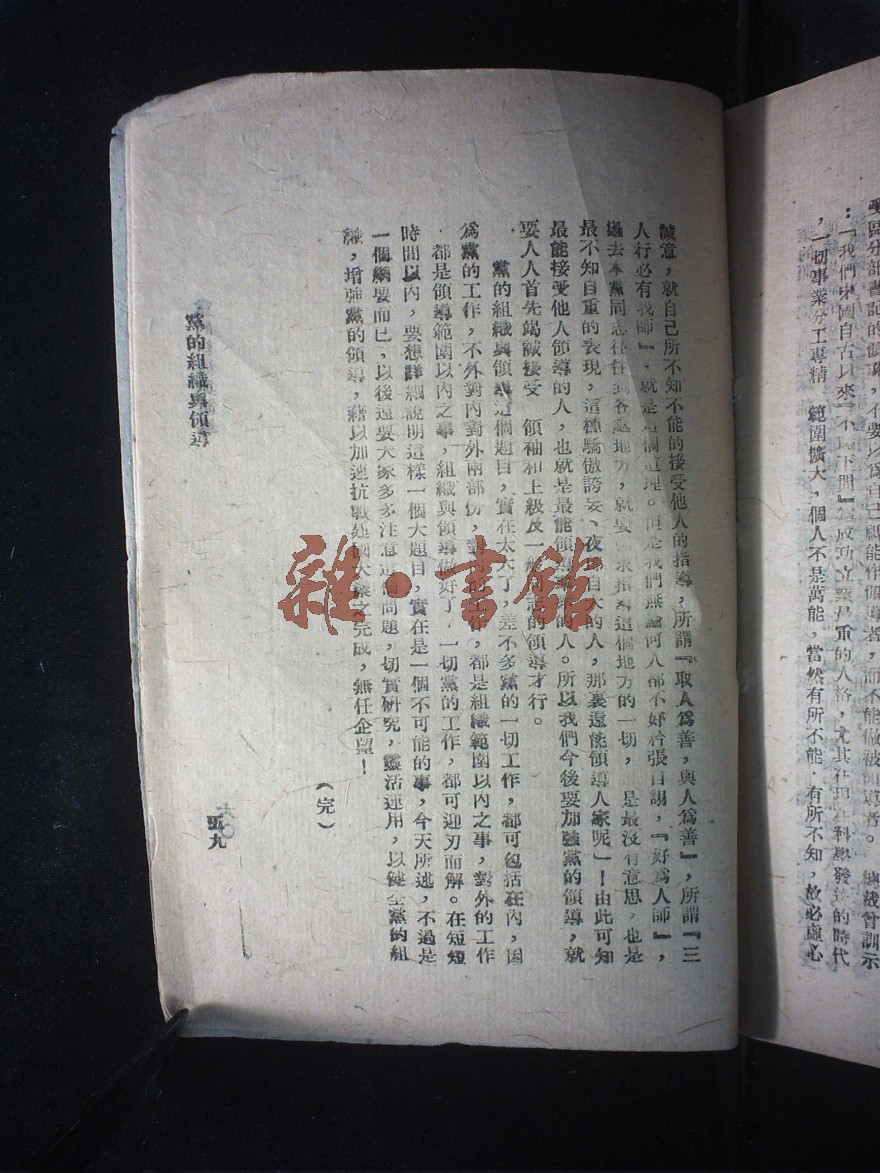 要區分部書記的領導，不要以為自己祇能作領導者，而不能做被領導者。　總裁曾訓示
：「我們中國自古以來『不恥下問』為成功立業最重的人格，尤其在現在科學發達的時代
，一切事業分工專精　範圍擴大，個人不是萬能，當然有所不能　有所不知，故必虛心
誠意，就自己所不知不能的接受他人的指導，所謂『取人為善，與人為善』，所謂『三
人行必有我師』，就是這個道理。但是我們無論何人都不好矜張自詡，『好為人師』，
過去本黨同志往往到各處地方，就要求指導這個地方的一切，　是最沒有意思，也是
最不知自重的表現，這種驕傲誇妄、夜自大的人，那裏還能領導人家呢」！由此可知
最能接受他人領導的人，也就是最能領導的人。所以我們今後要加強黨的領導，就
要人人首先竭誠接受　領袖和上級及一般同志的領導才行。
黨的組織與領導這個題目，實在太大了，差不多黨的一切工作，都可包括在內，因
為黨的工作，不外對內對外兩部份，對內的工作，都是組織範圍以內之事，對外的工作
都是領導範圍以內之事，組織與領導做好了，一切黨的工作，都可迎刃而解。在短短
時間以內，要想詳細說明這樣一個大題目，實在是一個不可能的事，今天所述，不過是
一個綱要而已，以後還要大家多多注意這個問題，切實研究，靈活運用，以健全黨的組
織，增強黨的領導，藉以加速抗戰建國大業之完成，無任企望！
（完）
黨的組織與領導
五九
雜·書館